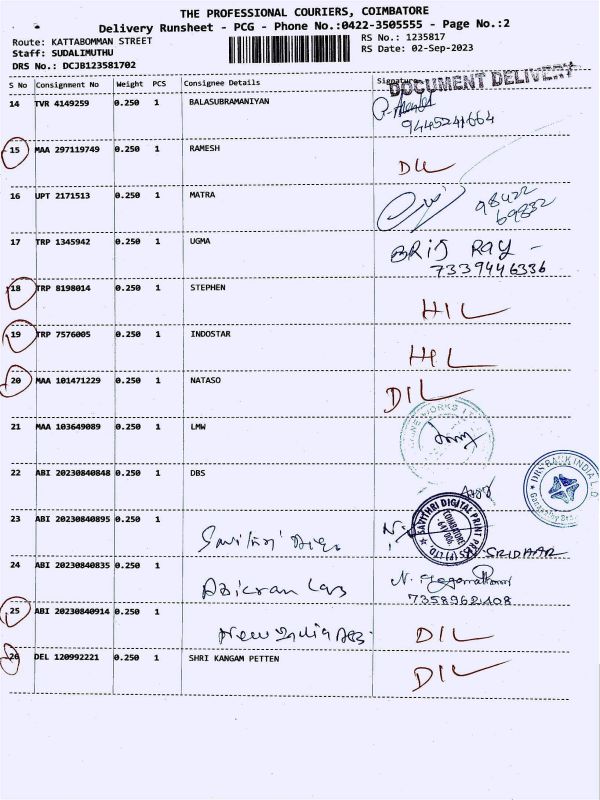 THE PROFESSIONAL COURIERS, COIMBATORE
Delivery Runsheet - PCG - Phone No.:0422-3505555 - Page No.:2
Route: KATTABOMMAN STREET
RS No.: 1235817
Staff: SUDALIMUTHU
RS Date: 02-Sep-2023
DRS No.: DCJB123581702
S No Consignment No Weight PCS Consignee Details Signature
DOCUMENT DELIVERY
14 TVR 4149259 0.250 1 BALASUBRAMANIYAN
9445241664
15 MAA 297119749 0.250 1 RAMESH
DIL
16 UPT 2171513 0.250 1 MATRA
98422
69832
17 TRP 1345942 0.250 1 UGMA
BRIJ RAY -
7339446336
18 TRP 8198014 0.250 1 STEPHEN
HIL
19 TRP 7576005 0.250 1 INDOSTAR
HIL
20 MAA 101471229 0.250 1 NATASO
DIL
21 MAA 103649089 0.250 1 LMW
22 ABI 20230840848 0.250 1 DBS
DBS BANK INDIA L
23 ABI 20230840895 0.250 1
SAVITHRI DIGITAL PRINT
COIMBATORE
SRIDHAR
24 ABI 20230840835 0.250 1
7358962408
25 ABI 20230840914 0.250 1
New India
DIL
26 DEL 120992221 0.250 1 SHRI KANGAM PETTEN
DIL